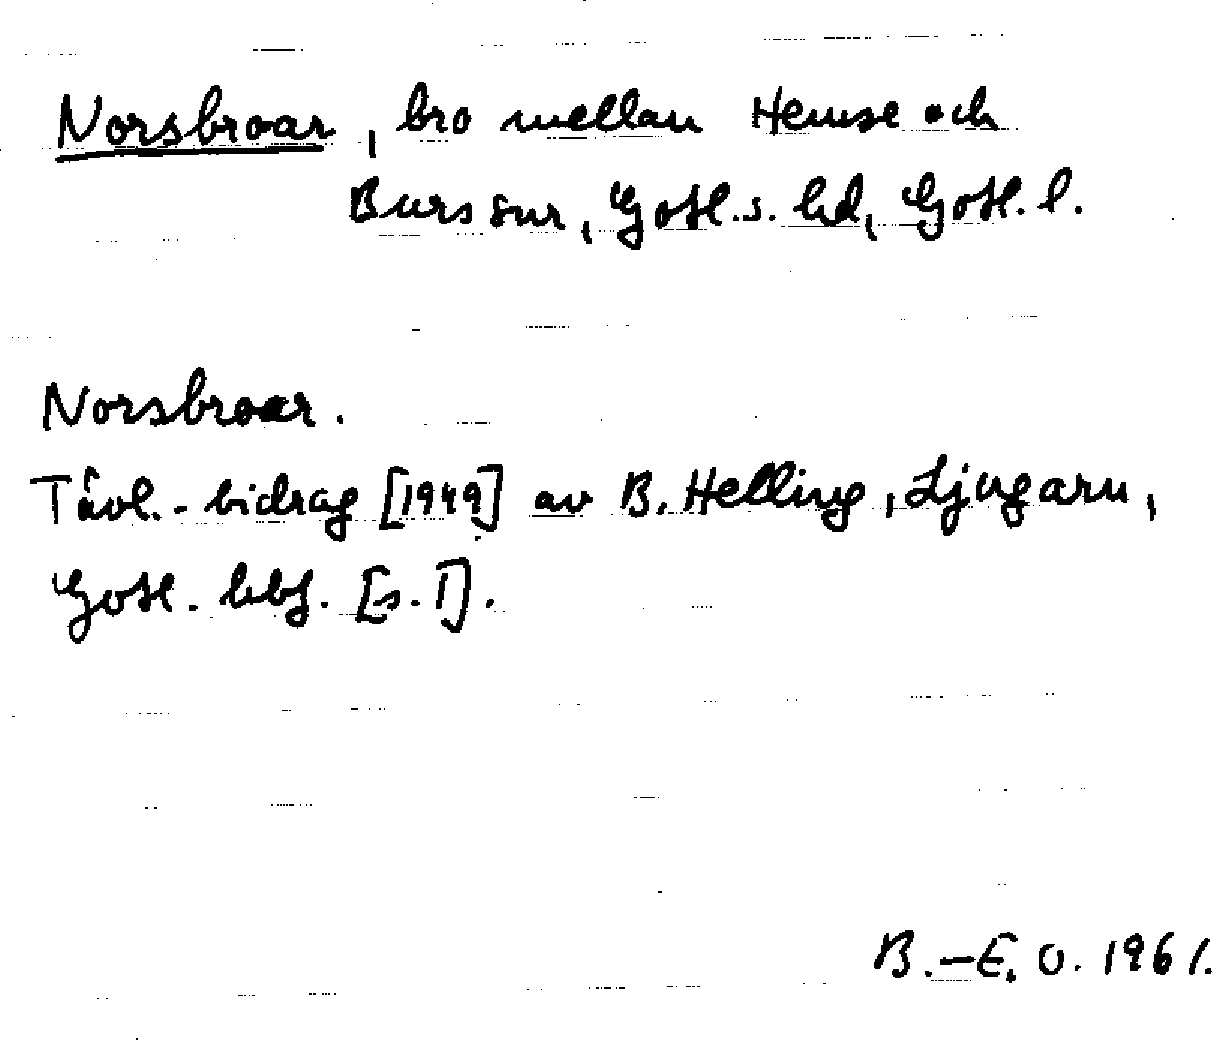 Norsbroar, bro mellan Hemse och
Burs snr, Gotl. s. hd, Gotl. l.
Norsbroar.
Tävl.-bidrag [1949] av B. Helling, Ljugarn,
Gotl. hbf. [s. 1].
B.-E. O. 1961.